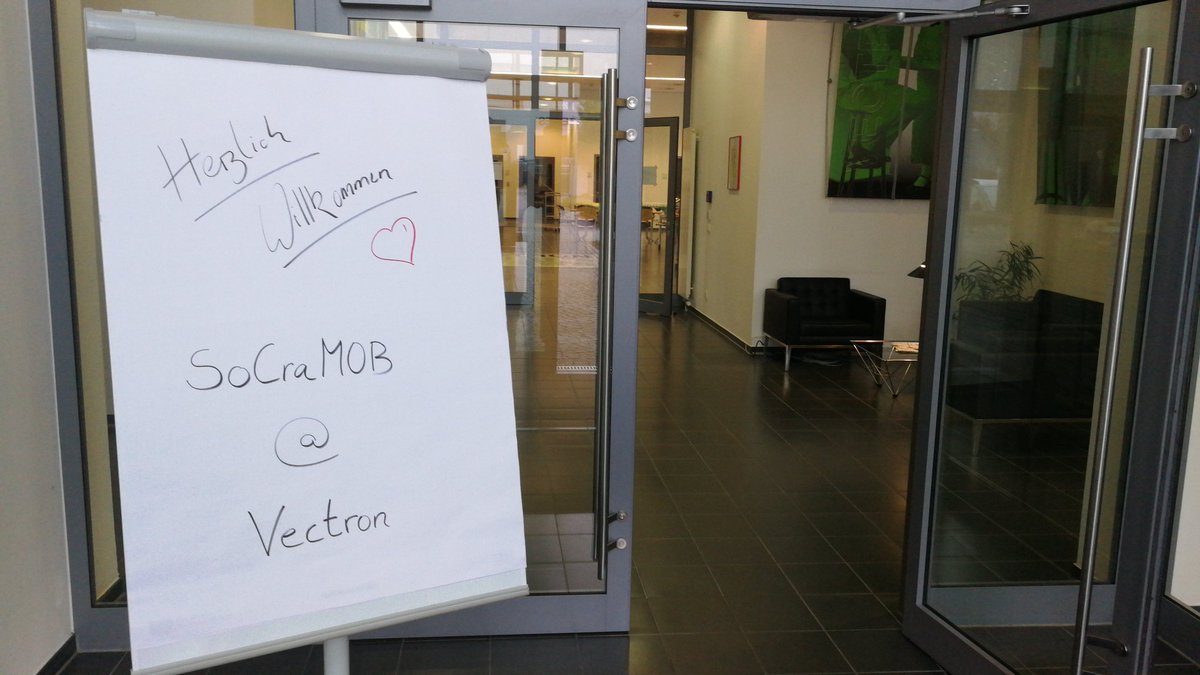 Herzlich
Willkommen
SoCraMOB
@
Vectron